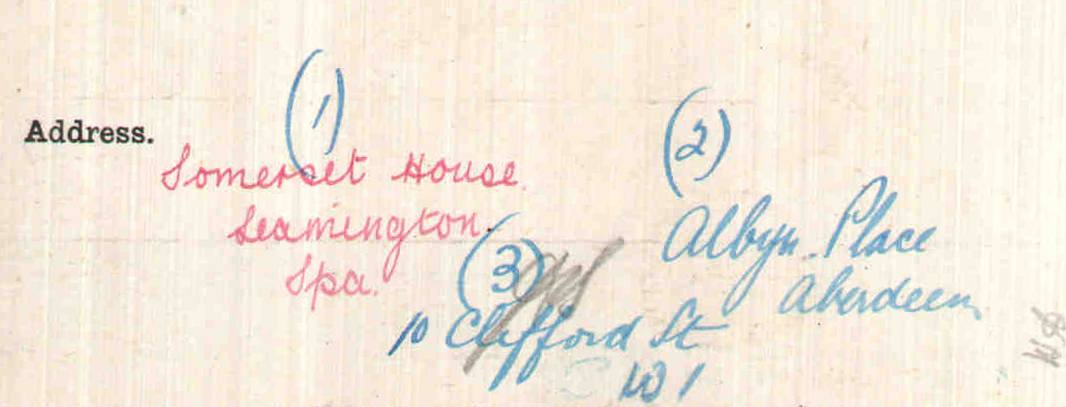 Address.
(1)
Somerset House
Leamington
Spa.
(2)
Albyn Place
Aberdeen
(3)
10 Clifford St
W 1